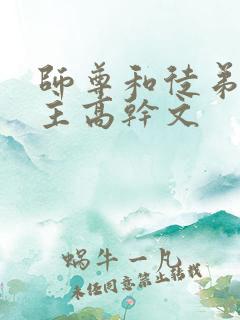 師尊和徒弟
主高幹文
蝸牛一凡
未經同意禁止轉載